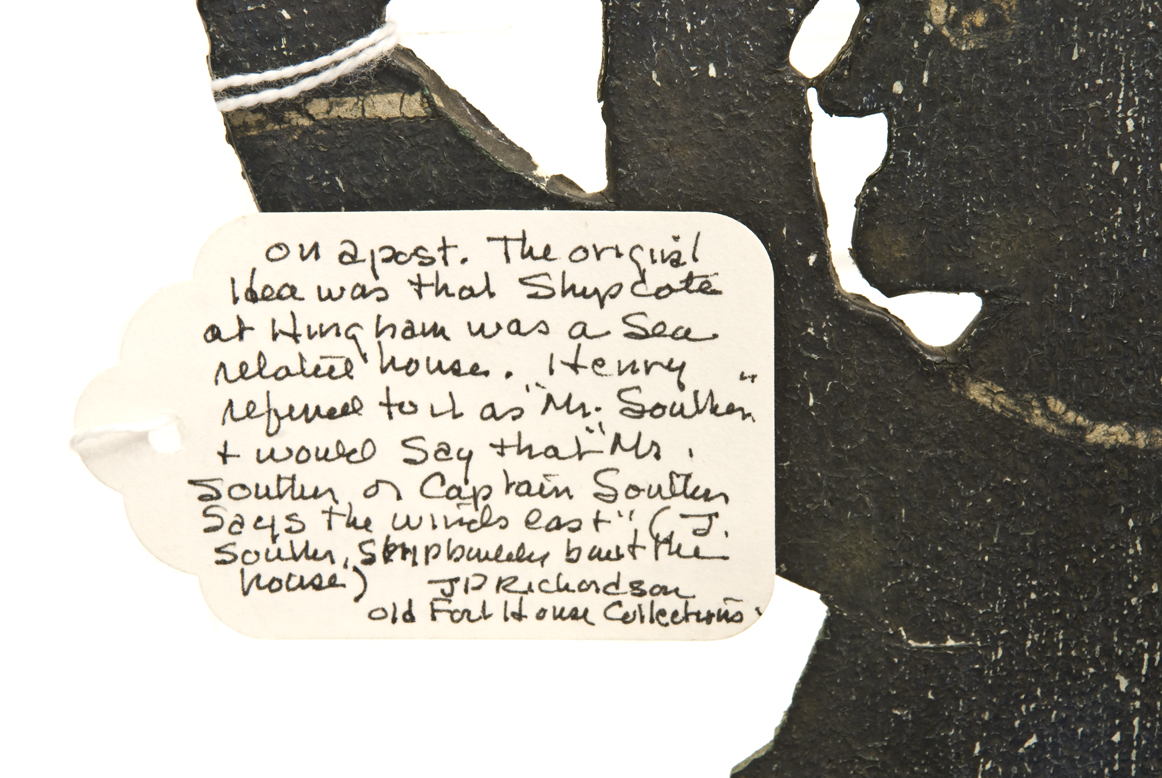 on a post. The original
Idea was that Shipcote
at Hingham was a Sea
related house. Henry
referred to it as "Mr. Souther"
+ would Say that "Mr.
Souther or Captain Souther
Says the winds east" (J.
Souther, Shipbuilder built the
house) JD Richardson
Old Fort House Collections.